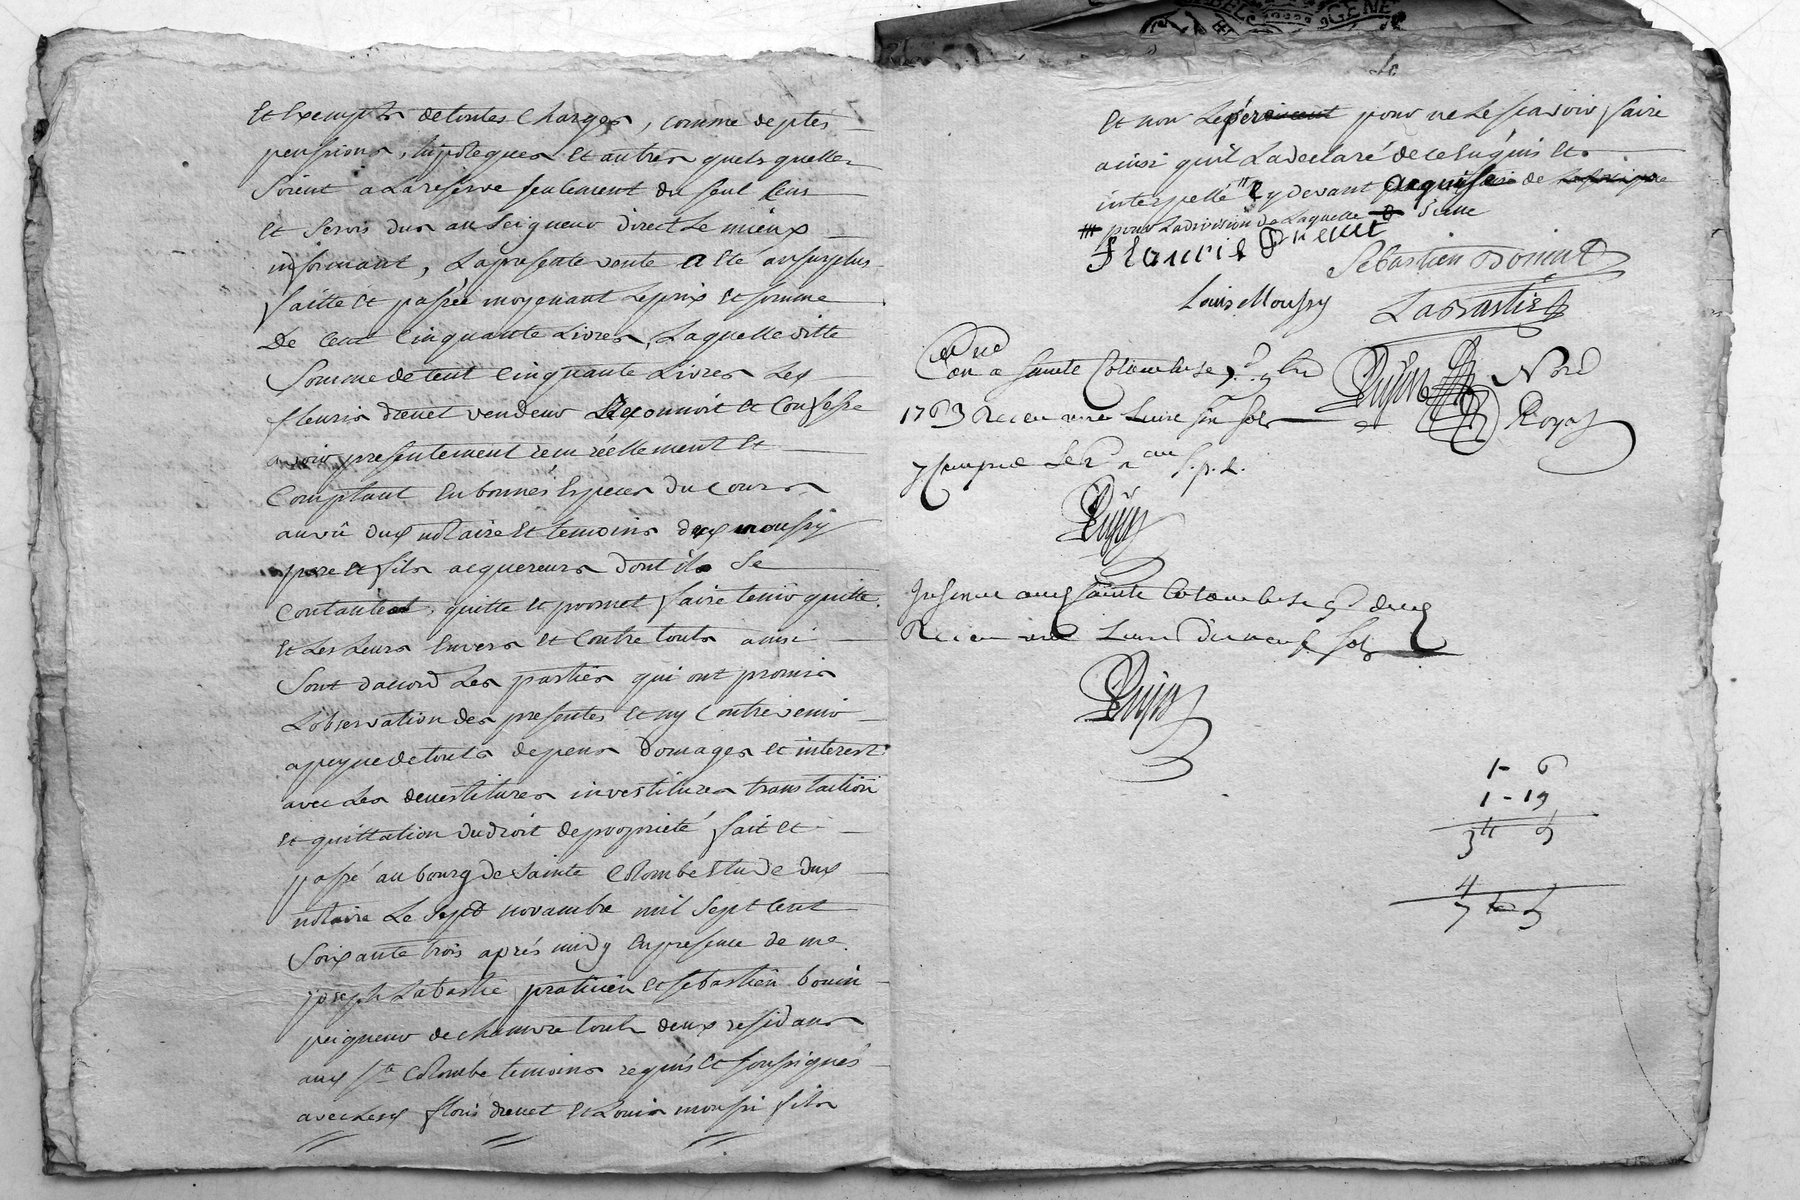 Et Exempts de toutes Charges, comme deptes
pensions, hipoteques Et autres quels quelles
Soient a La reserve seulement du seul Cens
et Servis dus au Seigneur direct Le mieux
informant, La presente vente a Eté au surplus
faitte et passée moyenant Le prix et somme
De Cent Cinquante Livres, Laquelle ditte
Somme de Cent Cinquante Livres Led
fleuris drevet vendeur Reconnoit et Confesse
avoir presentement recu réellement et
Comptant En bonnes Especes du Cours
au vû dud notaire Et temoins desd moussy
pere et fils acquereurs dont il Se
Contante, quitte et promet faire tenir quitte
Et Les Leurs Envers et Contre touts ainsi
Sont daccord Les parties qui ont promis
L'observation des presentes Et ny Contrevenir
a peyne de touts depens domages et interest
avec Les devestitures investitures translation
Et quittation du droit de proprieté fait et
passé au bourg de Sainte Colombe Etude dud
notaire Le Sept novambre mil Sept Cent
Soixante trois aprés midy En presence de me
joseph Labastie praticien et Sebastien bouin
peigneur de chanvre touts deux residans
aud Ste Colombe temoins requis et soussignés
avec Lesd floris drevet et Louis moussi fils
Et non Le pere pour ne Le scavoir faire
ainsi quil La declaré de ce Enquis et
interpellé Cy devant acquise de
pour La division de Laquelle
Sebastien
Louis Moussy Labastie
a Sainte Colombe
1763 Receu une Livre six sols
Royal
y Compris Les s. p. L.
Sainte Colombe
Receu une Livre dix neuf sols
1 - 6
1 - 19
3tt 5
4
7tt 5